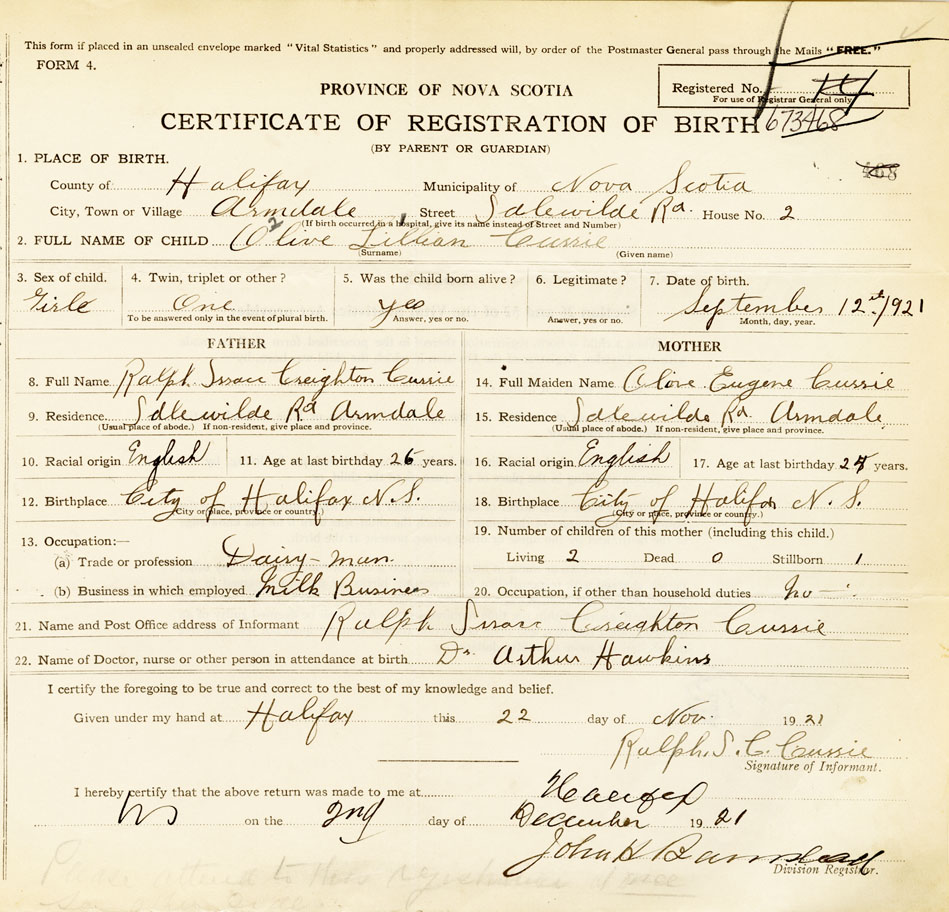 This form if placed in an unsealed envelope marked "Vital Statistics" and properly addressed will, by order of the Postmaster General pass through the Mails "FREE."
FORM 4.
PROVINCE OF NOVA SCOTIA
Registered No.
For use of Registrar General only
CERTIFICATE OF REGISTRATION OF BIRTH 673468
(BY PARENT OR GUARDIAN)
1. PLACE OF BIRTH. 468
County of Halifax Municipality of Nova Scotia
City, Town or Village Armdale Street Idlewilde Rd. House No. 2
(If birth occurred in a hospital, give its name instead of Street and Number)
2 1
2. FULL NAME OF CHILD Olive Lillian Currie
(Surname) (Given name)
3. Sex of child. 4. Twin, triplet or other? 5. Was the child born alive? 6. Legitimate? 7. Date of birth.
Girle One yes September 12th/1921
To be answered only in the event of plural birth. Answer, yes or no. Answer, yes or no. Month, day, year.
FATHER MOTHER
8. Full Name Ralph Issac Creighton Currie 14. Full Maiden Name Olive Eugene Currie
9. Residence Idlewilde Rd Armdale 15. Residence Idlewilde Rd. Armdale
(Usual place of abode.) If non-resident, give place and province. (Usual place of abode.) If non-resident, give place and province.
10. Racial origin English 11. Age at last birthday 26 years. 16. Racial origin English 17. Age at last birthday years.
12. Birthplace City of Halifax N.S. 18. Birthplace City of Halifax N. S.
(City or place, province or country.) (City or place, province or country.)
13. Occupation:— 19. Number of children of this mother (including this child.)
(a) Trade or profession Dairy-man Living 2 Dead 0 Stillborn 1
(b) Business in which employed Milk Business 20. Occupation, if other than household duties No
21. Name and Post Office address of Informant Ralph Issac Creighton Currie
22. Name of Doctor, nurse or other person in attendance at birth Dr. Arthur Hawkins
I certify the foregoing to be true and correct to the best of my knowledge and belief.
Given under my hand at Halifax this 22 day of Nov. 1921
Ralph. I. C. Currie
Signature of Informant.
I hereby certify that the above return was made to me at Halifax
NS on the 2nd day of December 1921
John H Barnstead
Division Registrar.